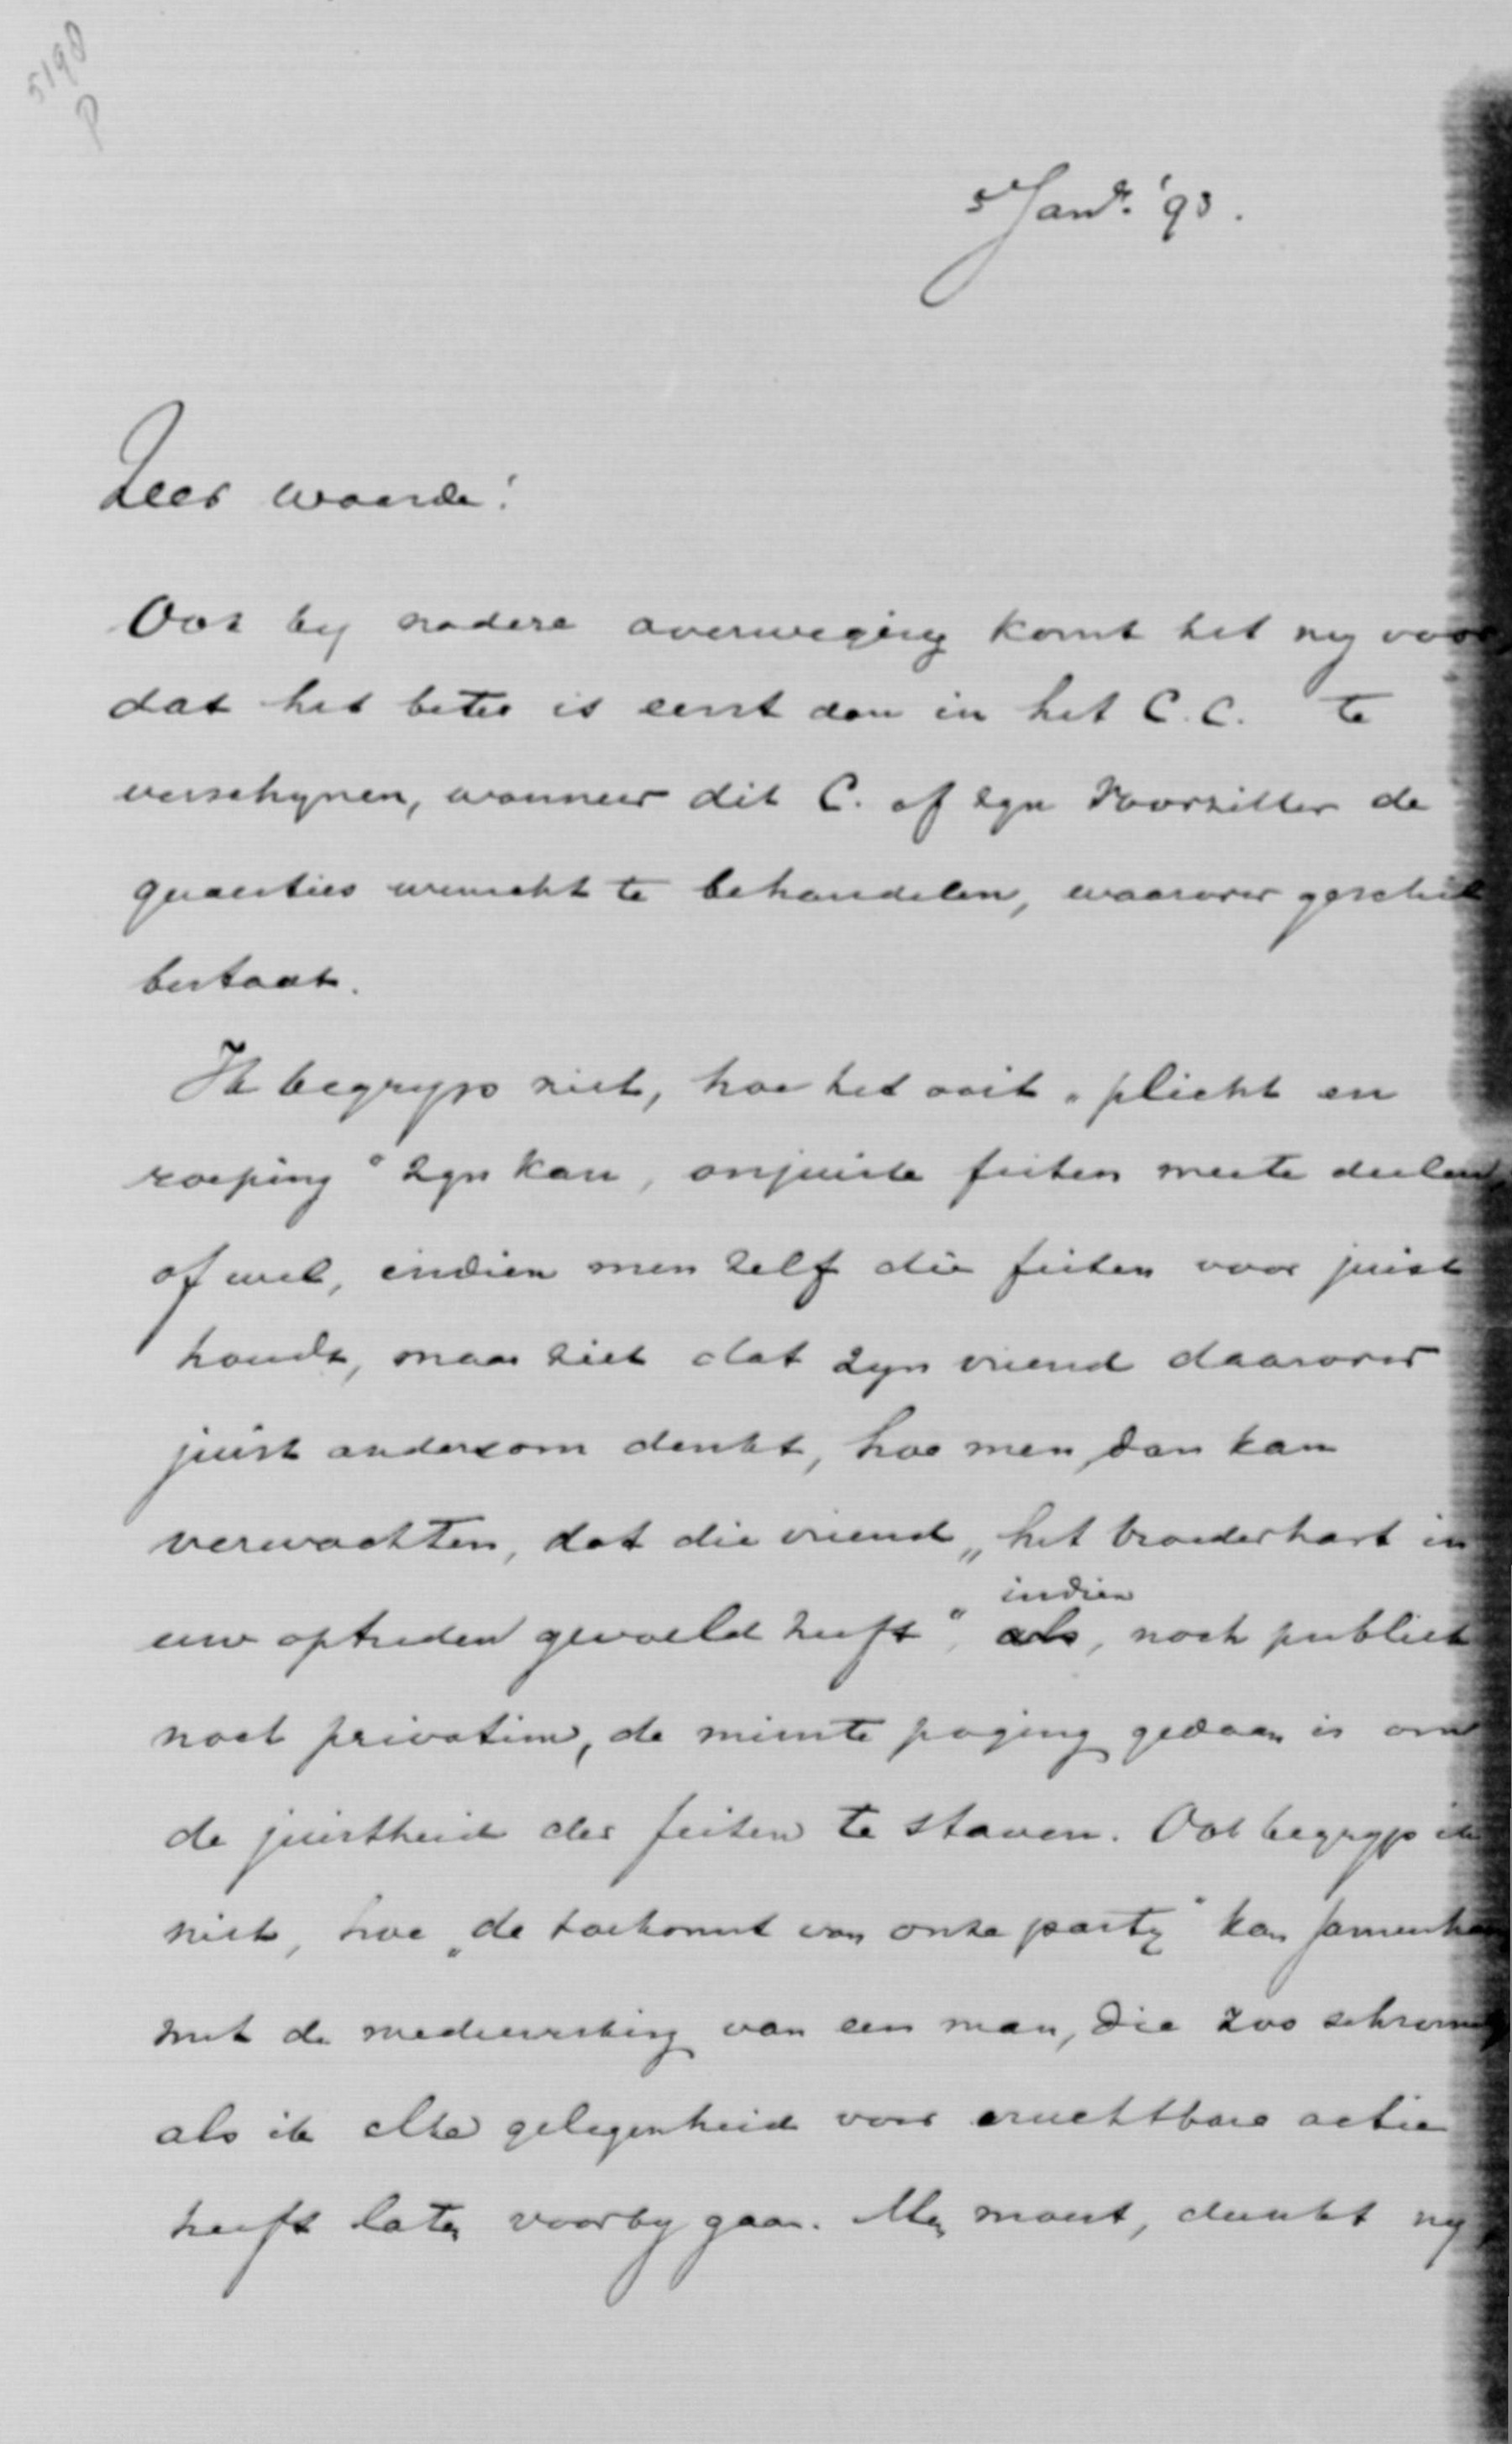 5190
P
5 Janr. '93.
Zeer waarde!
Ook by nadere overweging komt het my voor,
dat het beter is eerst dan in het C.C. te
verschynen, wanneer dit C. of zyn Voorzitter de
quaesties wenscht te behandelen, waarover geschil
bestaat.
Ik begryp niet, hoe het ooit „plicht en
roeping" zyn kan, onjuiste feiten mee te deelen,
of wel, indien men zelf die feiten voor juist
houdt, maar ziet dat zyn vriend daarover
juist andersom denkt, hoe men dan kan
verwachten, dat die vriend „het broederhart in
uw optreden gevoeld heeft", indien als, noch publiek
noch privatim, de minste poging gedaan is om
de juistheid der feiten te staven. Ook begryp ik
niet, hoe „de toekomst van onze party" kan samenhangen
met de medewerking van een man, die zoo schromelyk
als ik elke gelegenheid voor vruchtbare actie
heeft laten voorby gaan. Men moest, dunkt my,